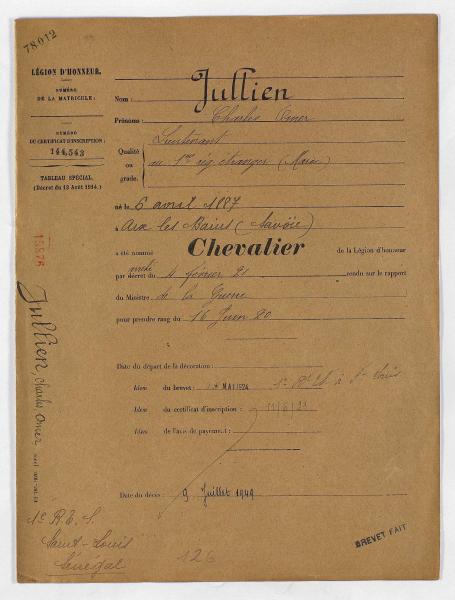 78012
LÉGION D'HONNEUR.
NUMÉRO
DE LA MATRICULE:
NUMÉRO
DU CERTIFICAT D'INSCRIPTION:
144,543
TABLEAU SPÉCIAL.
(Décret du 13 Août 1914.)
15576
Jullien, Charles Omer
Nom: Jullien
Prénoms: Charles Omer
Qualité ou grade. Lieutenant
au 1er rég étranger (Maroc)
né le 6 avril 1887
à Aix les Bains (Savoie)
a été nommé Chevalier de la Légion d'honneur
par décret du 4 février 21 rendu sur le rapport
du Ministre de la Guerre
pour prendre rang du 16 Juin 20
Date du départ de la décoration:
Idem du brevet: MAI 1924 à St Louis
Idem du certificat d'inscription:
Idem de l'avis de payement:
Date du décès: 9 Juillet 1949
1e R.T.S.
Saint-Louis
Sénégal
126
BREVET FAIT